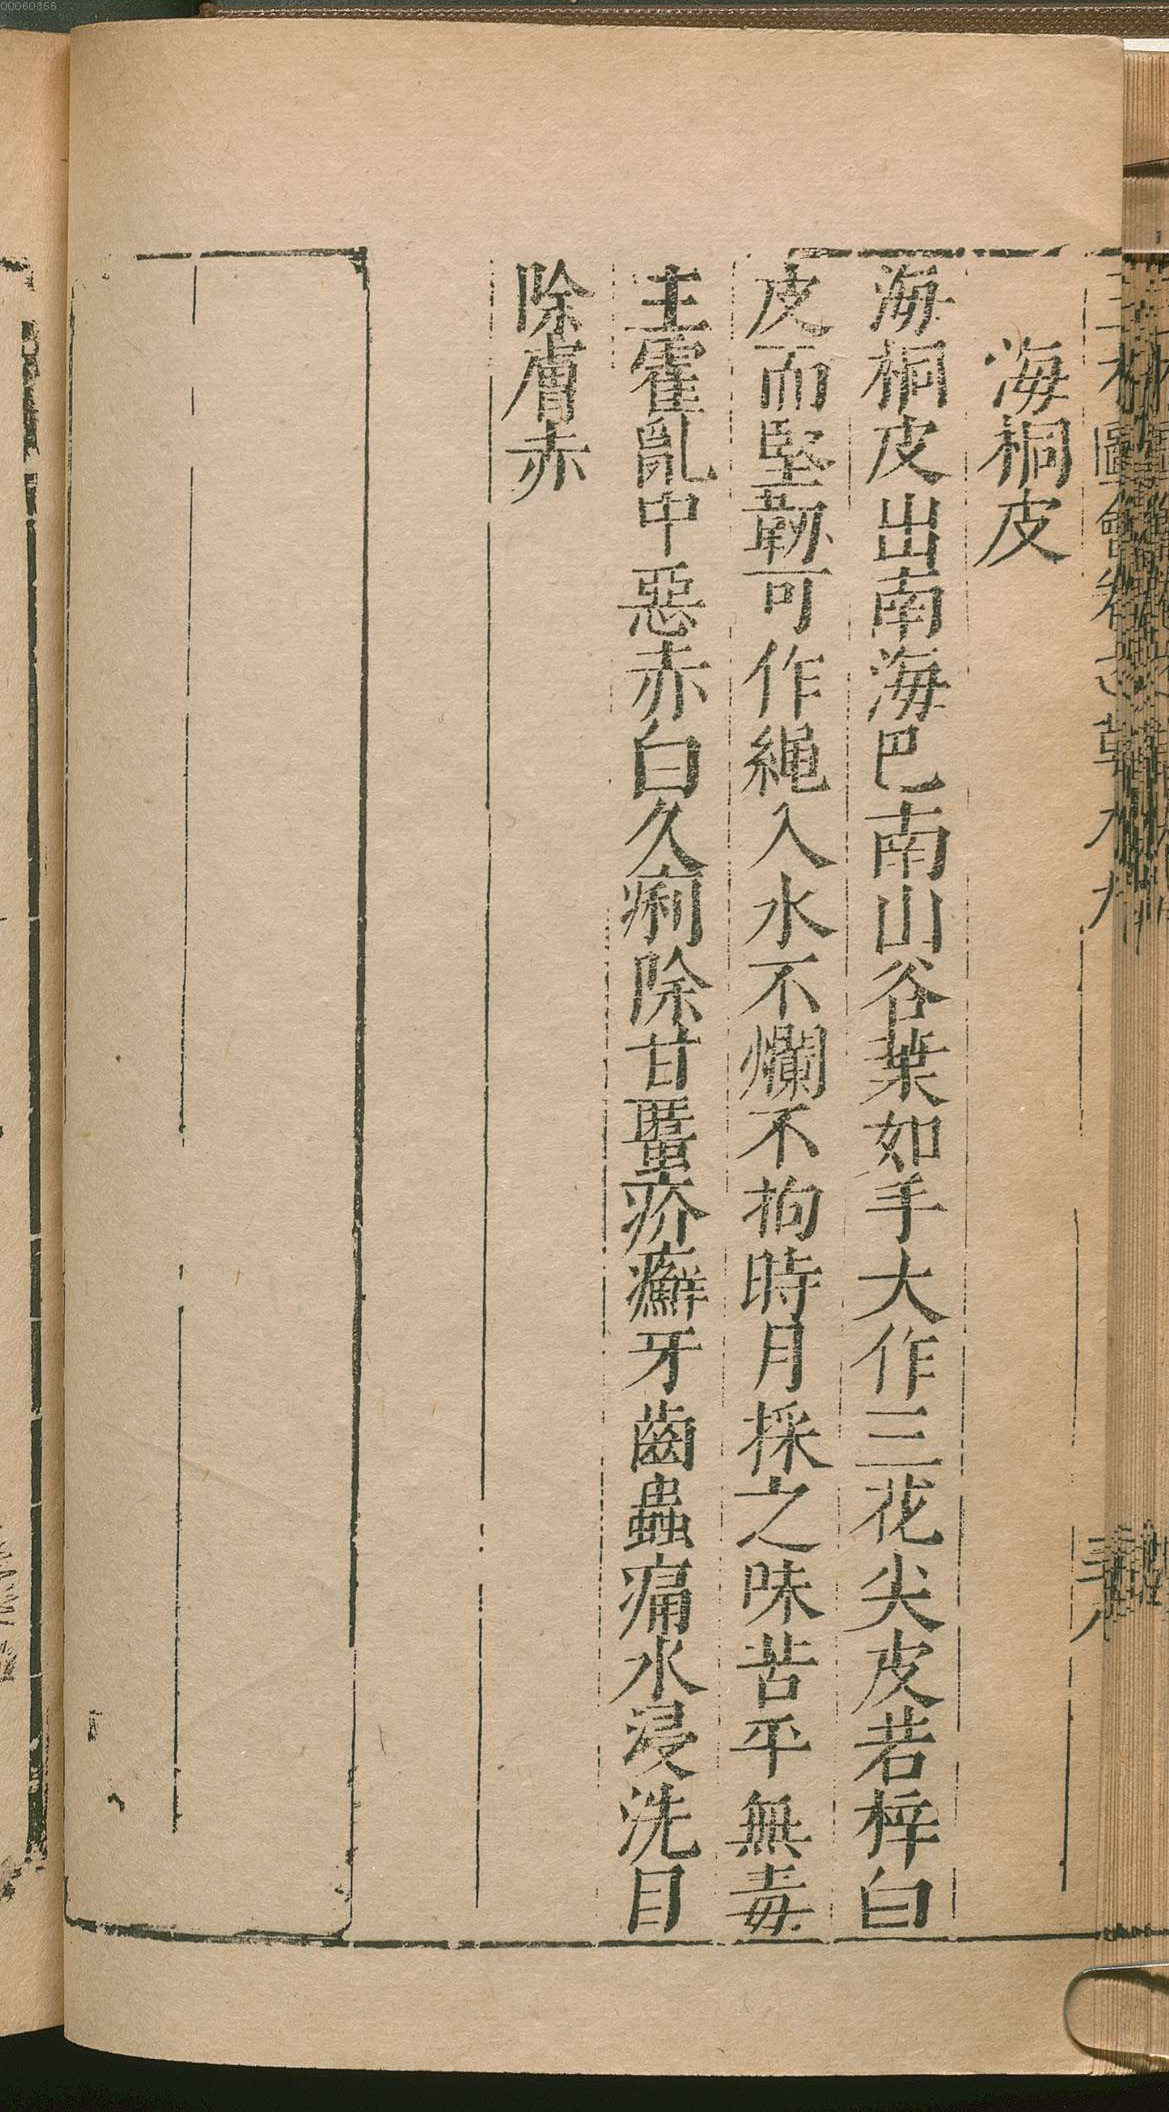 00060356
三才圖會卷之草木九
三八
海桐皮
海桐皮出南海巴南山谷葉如手大作三花尖皮若梓白
皮而堅韌可作繩入水不爛不拘時月採之味苦平無毒
主霍亂中惡赤白久痢除甘䘌疥癬牙齒蟲痛水浸洗目
除膚赤